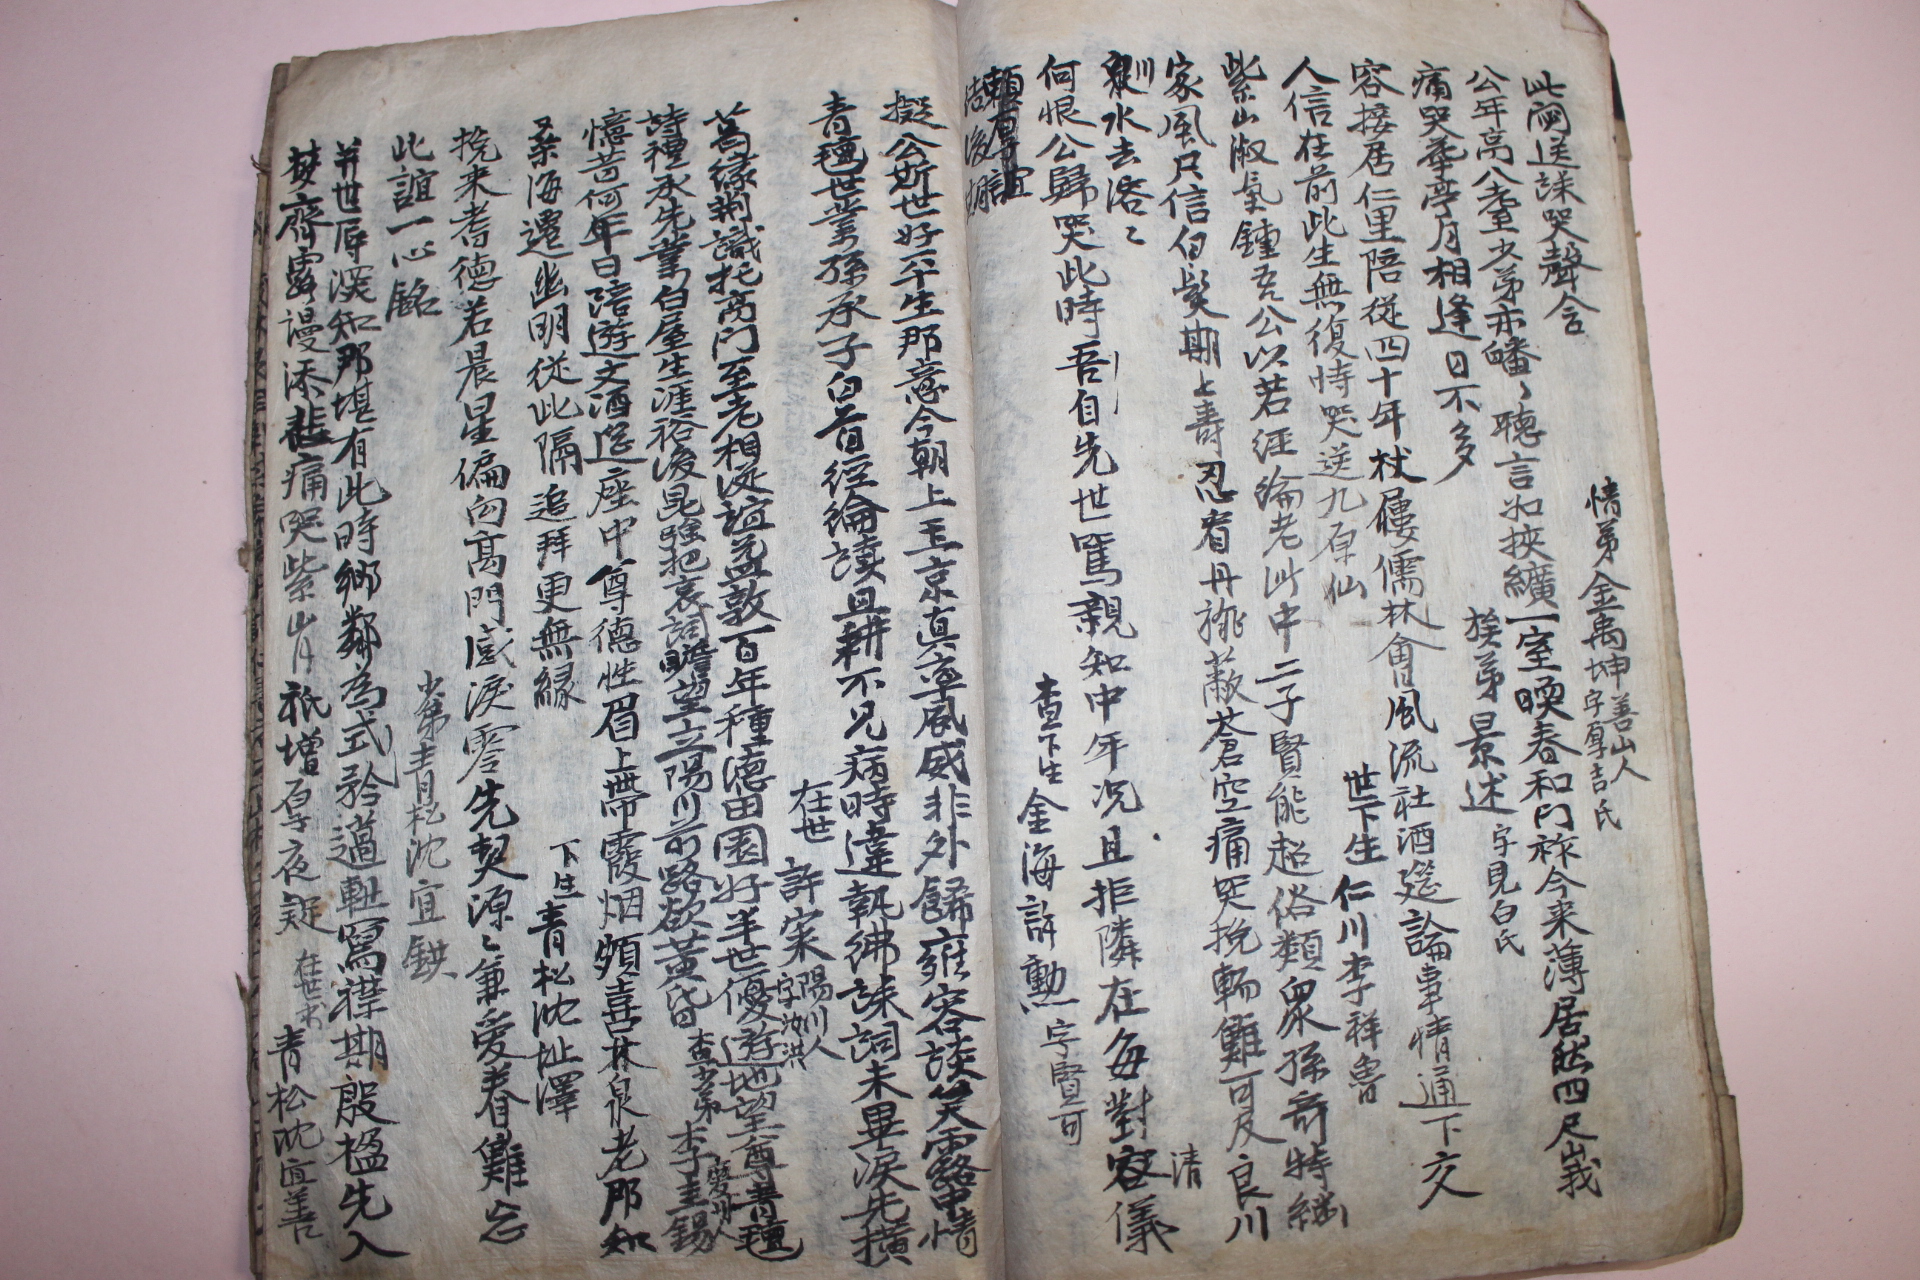 此闕送誄哭聲含
情弟金禹坤善山人字厚吉氏
公年高八耋少弟亦皤〻聽言如挾纊一室暖春和門祚今來薄居然四尺峩
痛哭華亭月相逢日不多
族弟景述字見白氏
容接居仁里陪從四十年杖屨儒林會風流社酒筵論事情通下交
人信在前此生無復時哭送九原仙
世下生仁川李祥魯
紫山淑氣鍾吾公以若經綸老此中二子賢能超俗類衆孫奇特繼
家風只信白髮期上壽忍看丹旐蔽蒼空痛哭挽輀難可及良川
泉水去溶〻
何恨公歸哭此時吾自先世篤親知中年況且拒隣在每對容儀
清
查下生金海許勳字賢可
擬公斯世好平生那意今朝上玉京真率風威非外飾雍容談笑露中情
青氈世業孫承子白首經綸讀且耕不見病時違執紼誄詞未畢淚先橫
在世許寀陽川人字汝洪
葛緣荊識托高門至老相從誼益敦百年種德田園好半世優遊地望尊青氈
詩禮承先業白屋生涯裕後昆強把哀詞瞻望立陽川前路欲黃昏
查少弟李圭錫
憶昔何年日陪遊文酒筵座中尊德性眉上帶霞烟頗喜林泉老那知
桑海遷幽明從此隔追拜更無緣
下生青松沈址澤
挽來耆德若晨星偏向高門感淚零先契源〻兼愛眷難忘
此誼一心銘
少弟青松沈宜鉷
并世居溪知那堪有此時鄉鄰為式矜邁軸寫襟期殷楹先入
夢齋露謾添悲痛哭紫山月祇增厚夜疑
在世少青松沈宜善